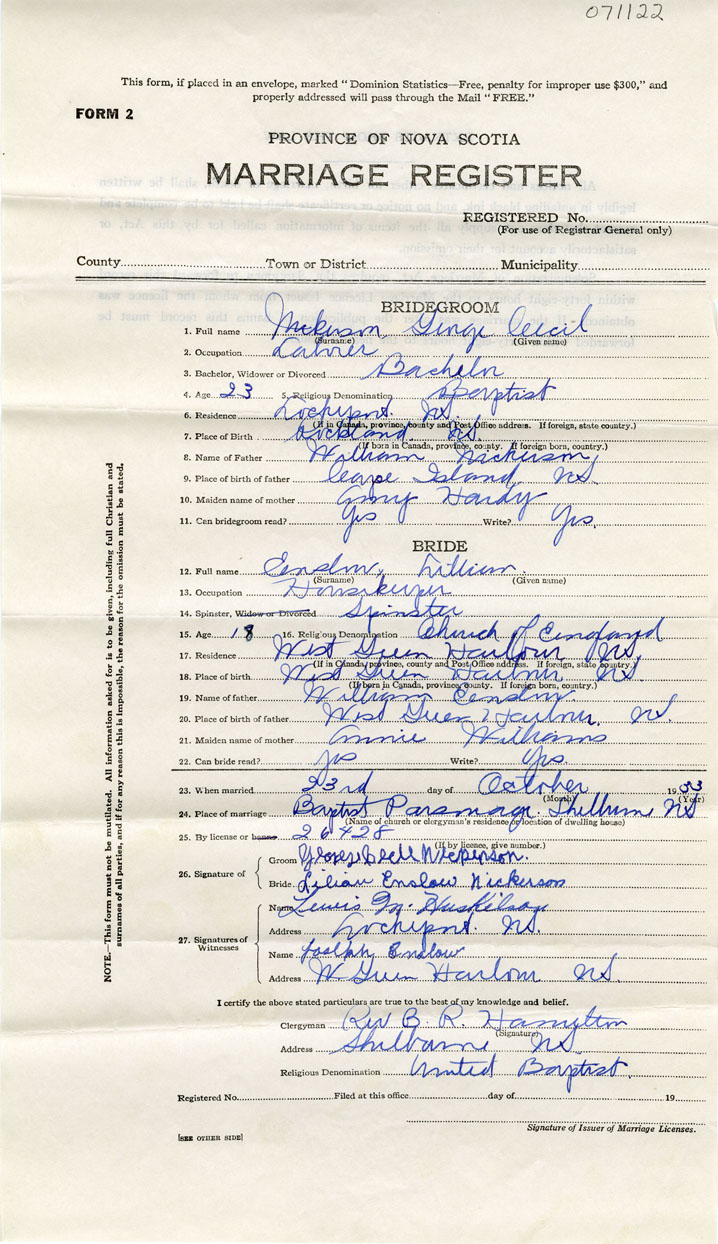 071122
This form, if placed in an envelope, marked "Dominion Statistics—Free, penalty for improper use $300," and
properly addressed will pass through the Mail "FREE."
FORM 2
PROVINCE OF NOVA SCOTIA
MARRIAGE REGISTER
REGISTERED No.
(For use of Registrar General only)
County Town or District Municipality
BRIDEGROOM
1. Full name Nickerson George Cecil
(Surname) (Given name)
2. Occupation Labourer
3. Bachelor, Widower or Divorced Bachelor
4. Age 23 5. Religious Denomination Baptist
6. Residence Lockeport. NS.
(If in Canada, province, county and Post Office address. If foreign, state country.)
7. Place of Birth Rockland, NS.
(If born in Canada, province, county. If foreign born, country.)
8. Name of Father William Nickerson,
9. Place of birth of father Cape Island, NS.
10. Maiden name of mother Amy Hardy
11. Can bridegroom read? Yes Write? Yes.
BRIDE
12. Full name Enslow, Lillian.
(Surname) (Given name)
13. Occupation Housekeeper
14. Spinster, Widow or Divorced Spinster
15. Age 18 16. Religious Denomination Church of England
17. Residence West Green Harbour NS,
(If in Canada, province, county and Post Office address. If foreign, state country.)
18. Place of birth West Green Harbour NS
(If born in Canada, province, county. If foreign born, country.)
19. Name of father William Enslow
20. Place of birth of father West Green Harbour, NS.
21. Maiden name of mother Annie Williams
22. Can bride read? Yes Write? Yes.
23. When married 23rd day of October 1933
(Month) (Year)
24. Place of marriage Baptist Parsonage. Shelburne NS
(Name of church or clergyman's residence or location of dwelling house)
25. By license or banns 26428
(If by licence, give number.)
26. Signature of
Groom George Cecil Nickerson.
Bride Lilian Enslow Nickerson
27. Signatures of Witnesses
Name Lewis M. Huskilson
Address Lockeport. NS.
Name Joseph Enslow
Address W Green Harbour NS
I certify the above stated particulars are true to the best of my knowledge and belief.
Clergyman Rev B. R. Hamilton
(Signature)
Address Shelburne NS
Religious Denomination United Baptist.
Registered No. Filed at this office day of 19
Signature of Issuer of Marriage Licenses.
[SEE OTHER SIDE]
NOTE.—This form must not be mutilated. All information asked for is to be given, including full Christian and
surnames of all parties, and if for any reason this is impossible, the reason for the omission must be stated.